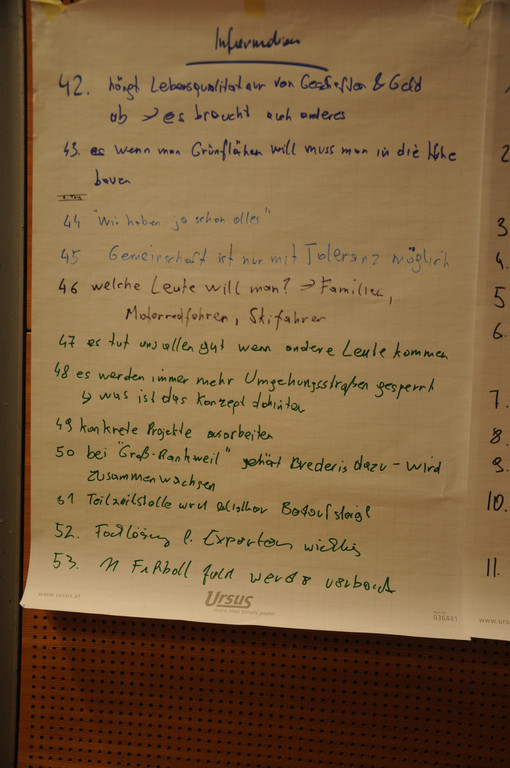 Information
42. hängt Lebensqualität nur von Geschäften & Geld
ab → es braucht auch anderes
43. es wenn man Grünflächen will muss man in die Höhe
bauen
44 "Wir haben ja schon alles"
45 Gemeinschaft ist nur mit Toleranz möglich
46 welche Leute will man? → Familien,
Motorradfahrer, Skifahrer
47 es tut uns allen gut wenn andere Leute kommen
48 es werden immer mehr Umgehungsstraßen gesperrt
↳ was ist das Konzept dahinter
49 konkrete Projekte ausarbeiten
50 bei "Groß-Rankweil" gehört Brederis dazu - wird
zusammenwachsen
51 Teilzeitstelle wird Bedarf steigt
52. Experten wichtig
53. Fußball verbaut
www.ursus.at
Ursus
036441
www.urs
2
3
4.
5
6.
7.
8.
9.
10.
11.